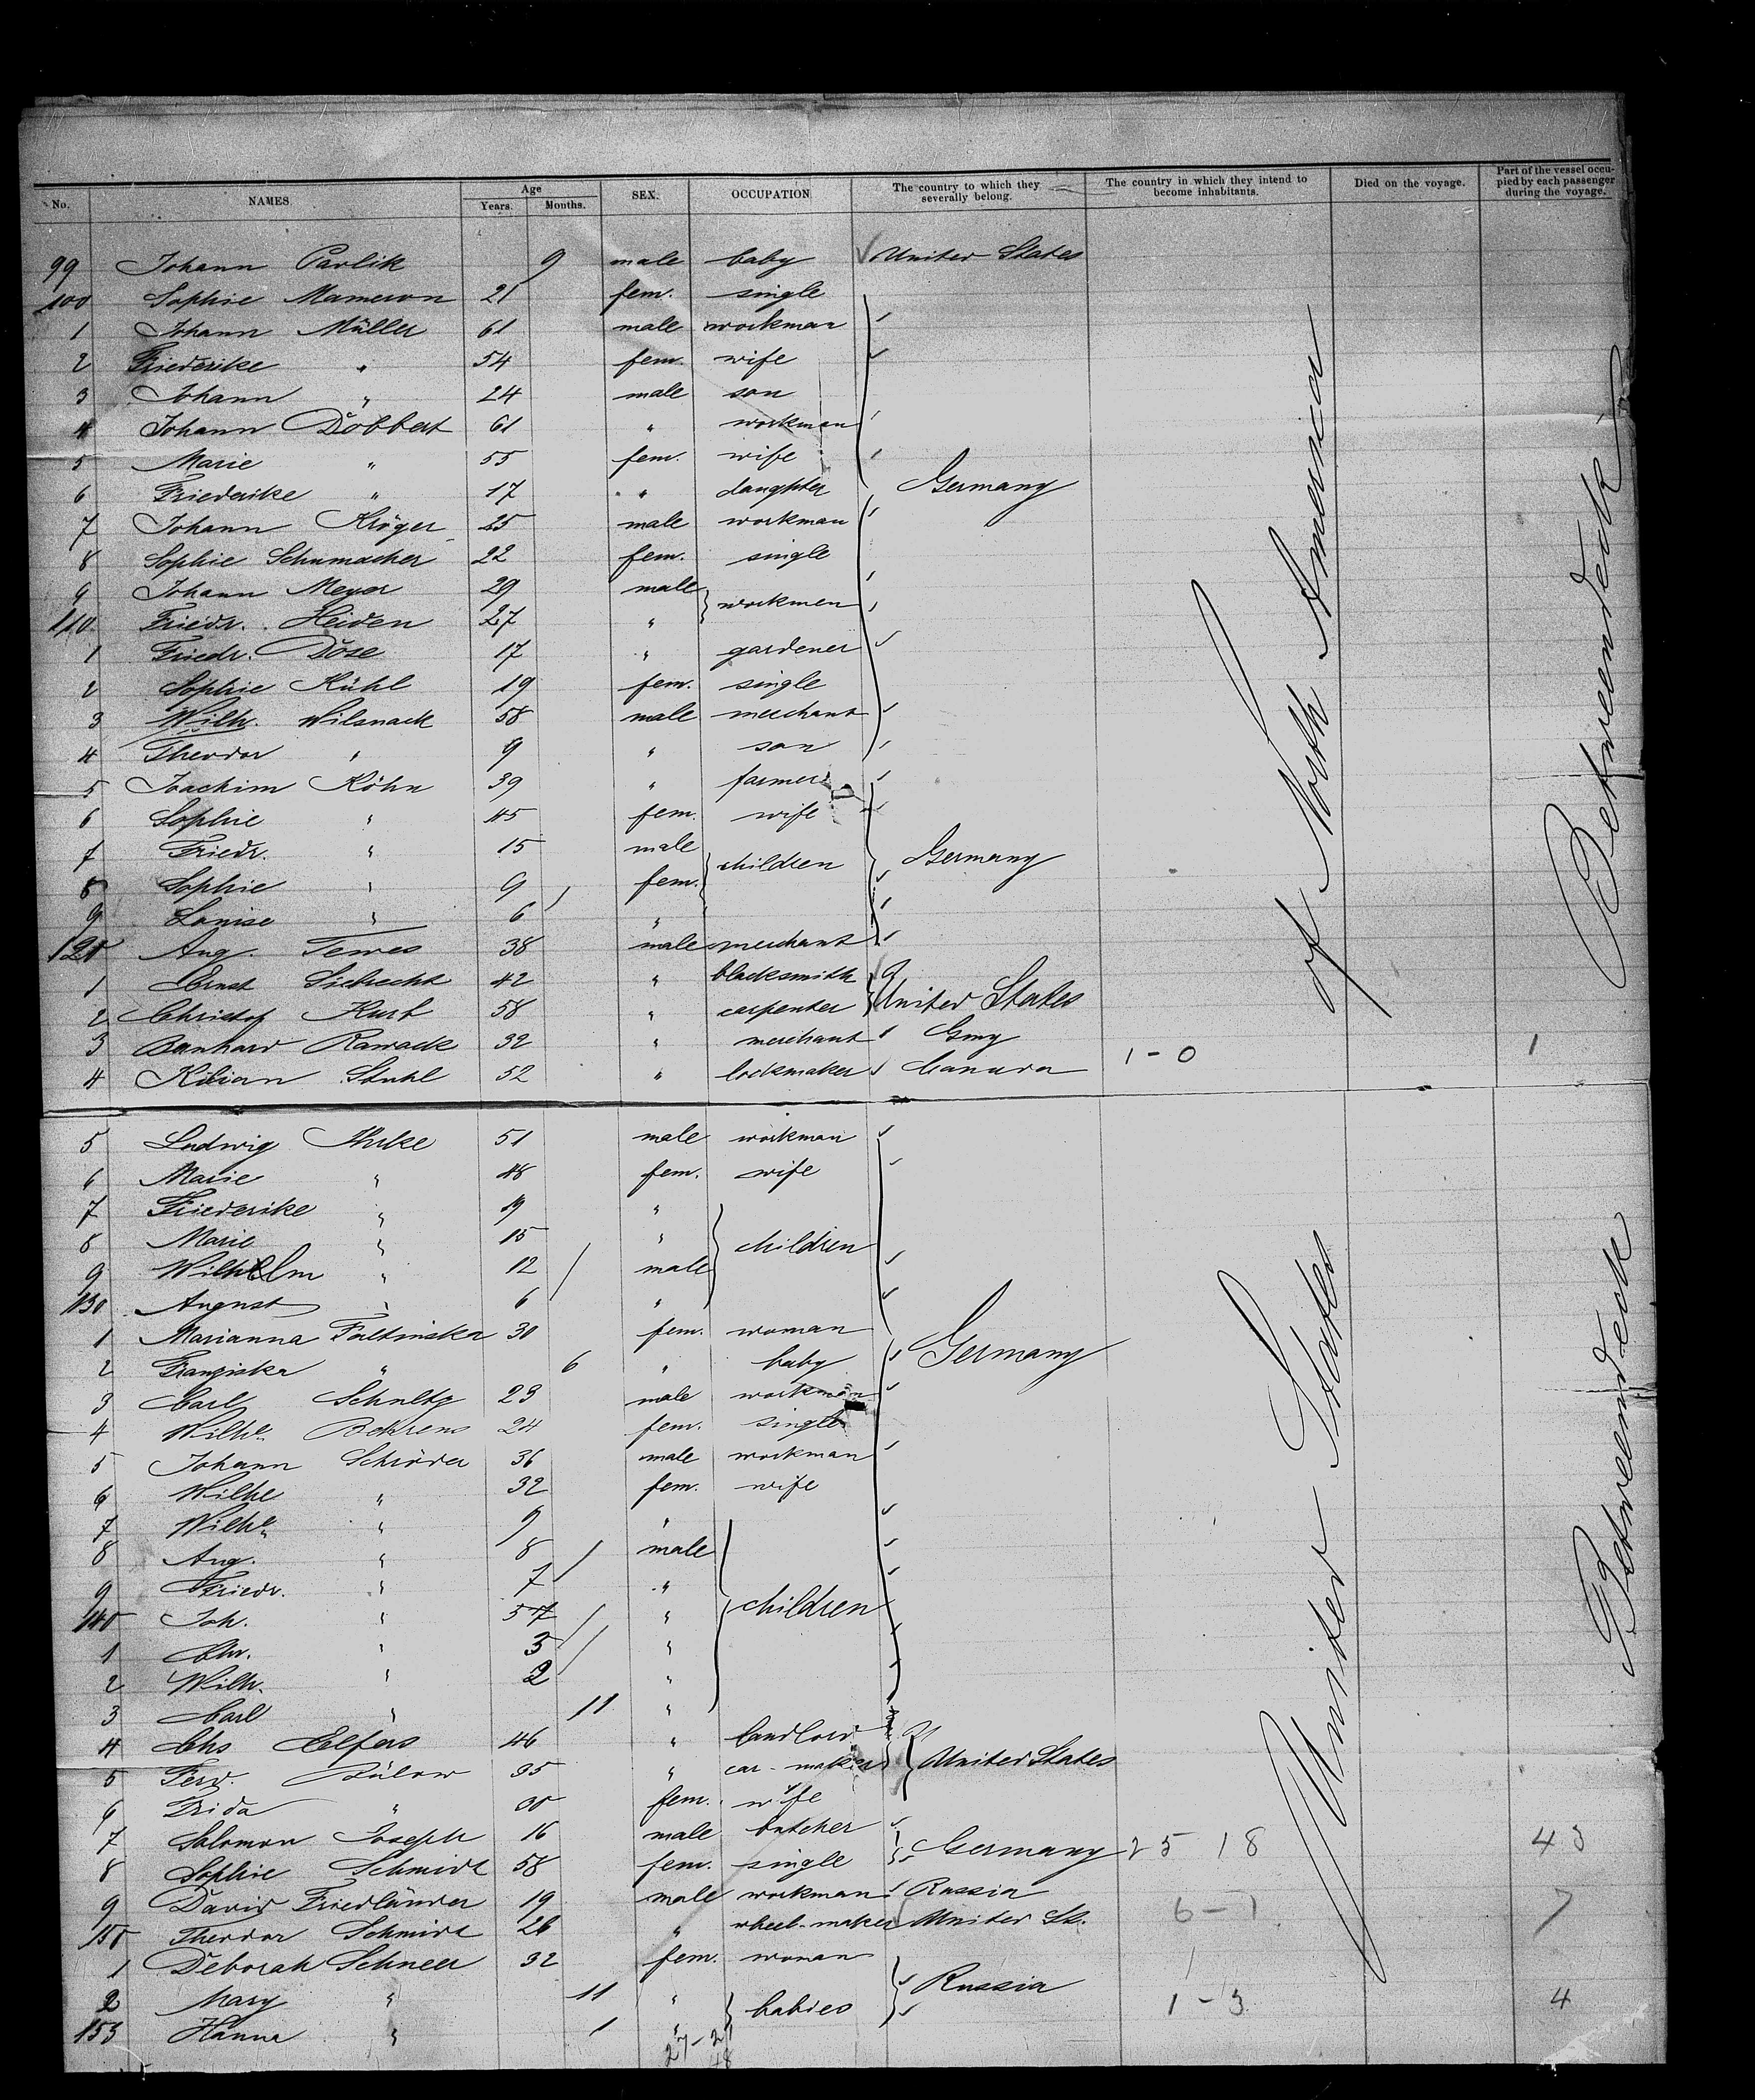 No. NAMES Age Years. Months. SEX. OCCUPATION The country to which they severally belong. The country in which they intend to become inhabitants. Died on the voyage. Part of the vessel occupied by each passenger during the voyage.
99 Johann Pavlik 9 male baby United States
100 Sophie Mameron 21 fem. single
1 Johann Müller 61 male workman
2 Friederike " 54 fem. wife
3 Johann " 24 male son
4 Johann Dobbert 61 " workman
5 Marie " 55 fem. wife
6 Friederike " 17 " daughter Germany
7 Johann Kröger 25 male workman
8 Sophie Schumacher 22 fem. single
9 Johann Meyer 29 male workmen
110 Friedr. Heiden 27 "
1 Friedr. Döse 17 " gardener
2 Sophie Kühl 19 fem. single
3 Wilh. Wilsnack 58 male merchant
4 Theodor " 9 " son
5 Joachim Köhn 39 " farmer
6 Sophie " 45 fem. wife
7 Friedr. " 15 male children Germany
8 Sophie " 9 fem.
9 Louise " 6 "
120 Aug. Tewes 38 male merchant
1 Ernst Siebrecht 42 " blacksmith United States
2 Christof Kurt 58 " carpenter
3 Bernhard Rawack 32 " merchant Gmy
4 Kilian Stuhl 52 " lockmaker Canada 1-0 1
5 Ludwig Thrke 51 male workman
6 Marie " 48 fem. wife
7 Friederike " 19 "
8 Marie " 15 " children
9 Wilhelm " 12 male
130 August " 6 "
1 Marianna Faltinska 30 fem. woman
2 Franziska " 6 " baby Germany
3 Carl Schultz 23 male workman
4 Wilhe. Behrens 24 fem. single
5 Johann Schröder 36 male workman
6 Wilhe " 32 fem. wife
7 Wilhe. " 9 "
8 Aug. " 8 male
9 Friedr. " 7 " children
140 Joh. " 5 7 "
1 Chr. " 3 "
2 Wilh. " 2 "
3 Carl " 11 "
4 Chs Elfers 46 " landlord
5 Ferd. Bülow 35 " car-maker United States
6 Frida " 30 fem. wife
7 Salomon Joseph 16 male butcher
8 Sophie Schmidt 58 fem. single Germany 25 18 43
9 David Friedländer 19 male workman Russia
150 Theodor Schmidt 26 " wheel-maker United St. 6-1 7
1 Deborah Schneer 32 fem. woman 1
2 Mary " 11 " babies Russia 1-3 4
153 Hanna " 1 "
27-21
48
United States of North America
Betweendeck
Betweendeck